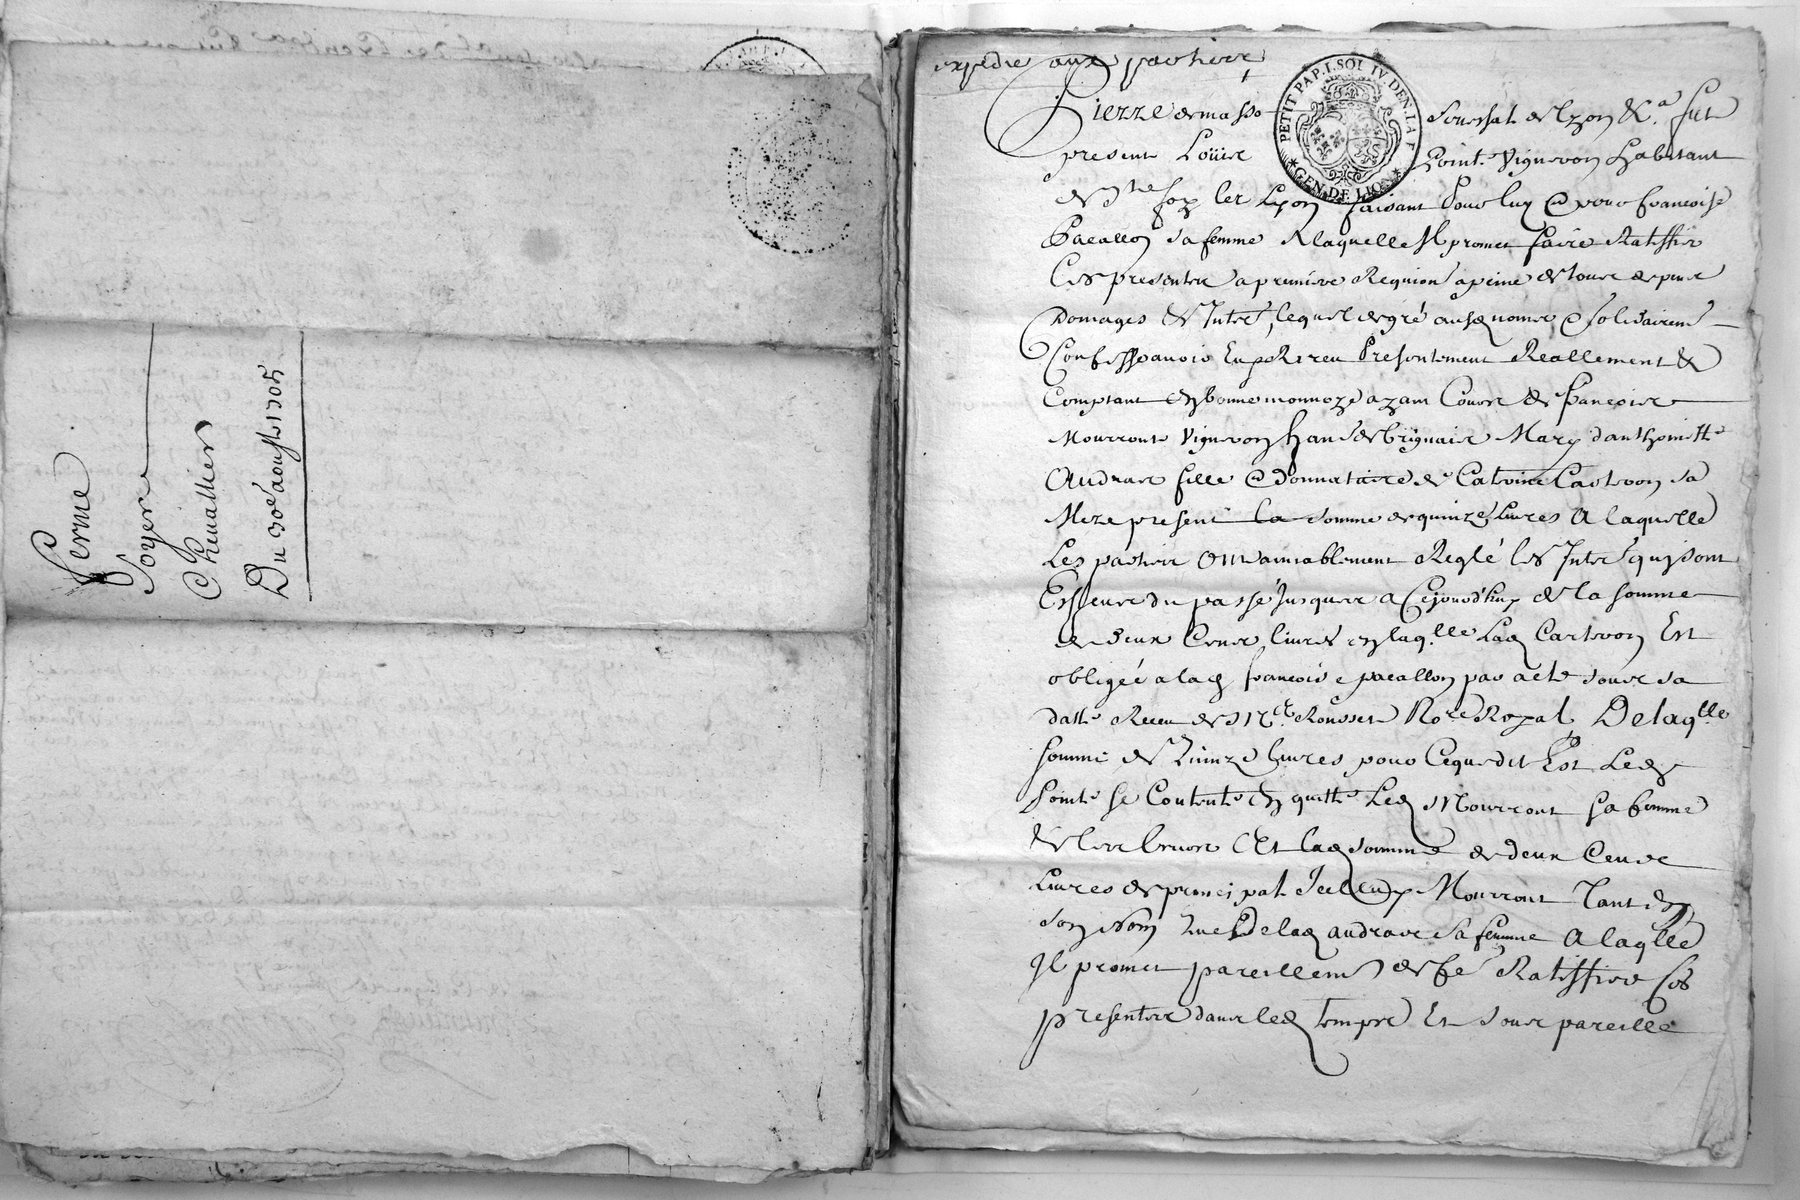 ferme
Soyere
Chevallier
Du 30e aoust 1705
expedie aux parties
PETIT PAP. I. SOL IV. DEN. LA F
GEN. DE LION
Pierre de masso Senechal de Lyon &a fut
present Loüis Pointe Vigneron habitant
de Ste foy les Lyon faisant pour luy & pour francoise
Pacallon sa femme a laquelle Il promet faire Ratiffier
Ces presentes a premiere Requion a peine de tous despens
Domages & Inter lequel de gré ausd noms & solidairemt
Confesse avoir Eu & Receu Presentement Reallement &
Comptant en bonne monnoye ayant Cours de francois
Mourront Vigneron hant de brignais Mary danthoinette
Andraue fille & donnataire de Catrine Carteron sa
Mere present la somme de quinze Livres a laquelle
Les parties ont amiablement Reglé les Inter qui sont
Escheus du passé Jusques a Cejourd'huy de la somme
de deux Cens livres en laqlle Lad Carteron Est
obligée a lad francoise pacallon par acte sous sa
datte Receu de Me Rousset Nore Royal De laqlle
somme de quinze livres pour Ceque dit Est Led
Pointe se Contente En quitte Led Mourront sa femme
& Et lad somme de deux Cens
Livres de principal Icelluy Mourront Tant En
son nom que De lad andraue sa femme a laqlle
Il promet pareillemt de fe Ratiffier Ces
presentes dans led temps Et sous pareille